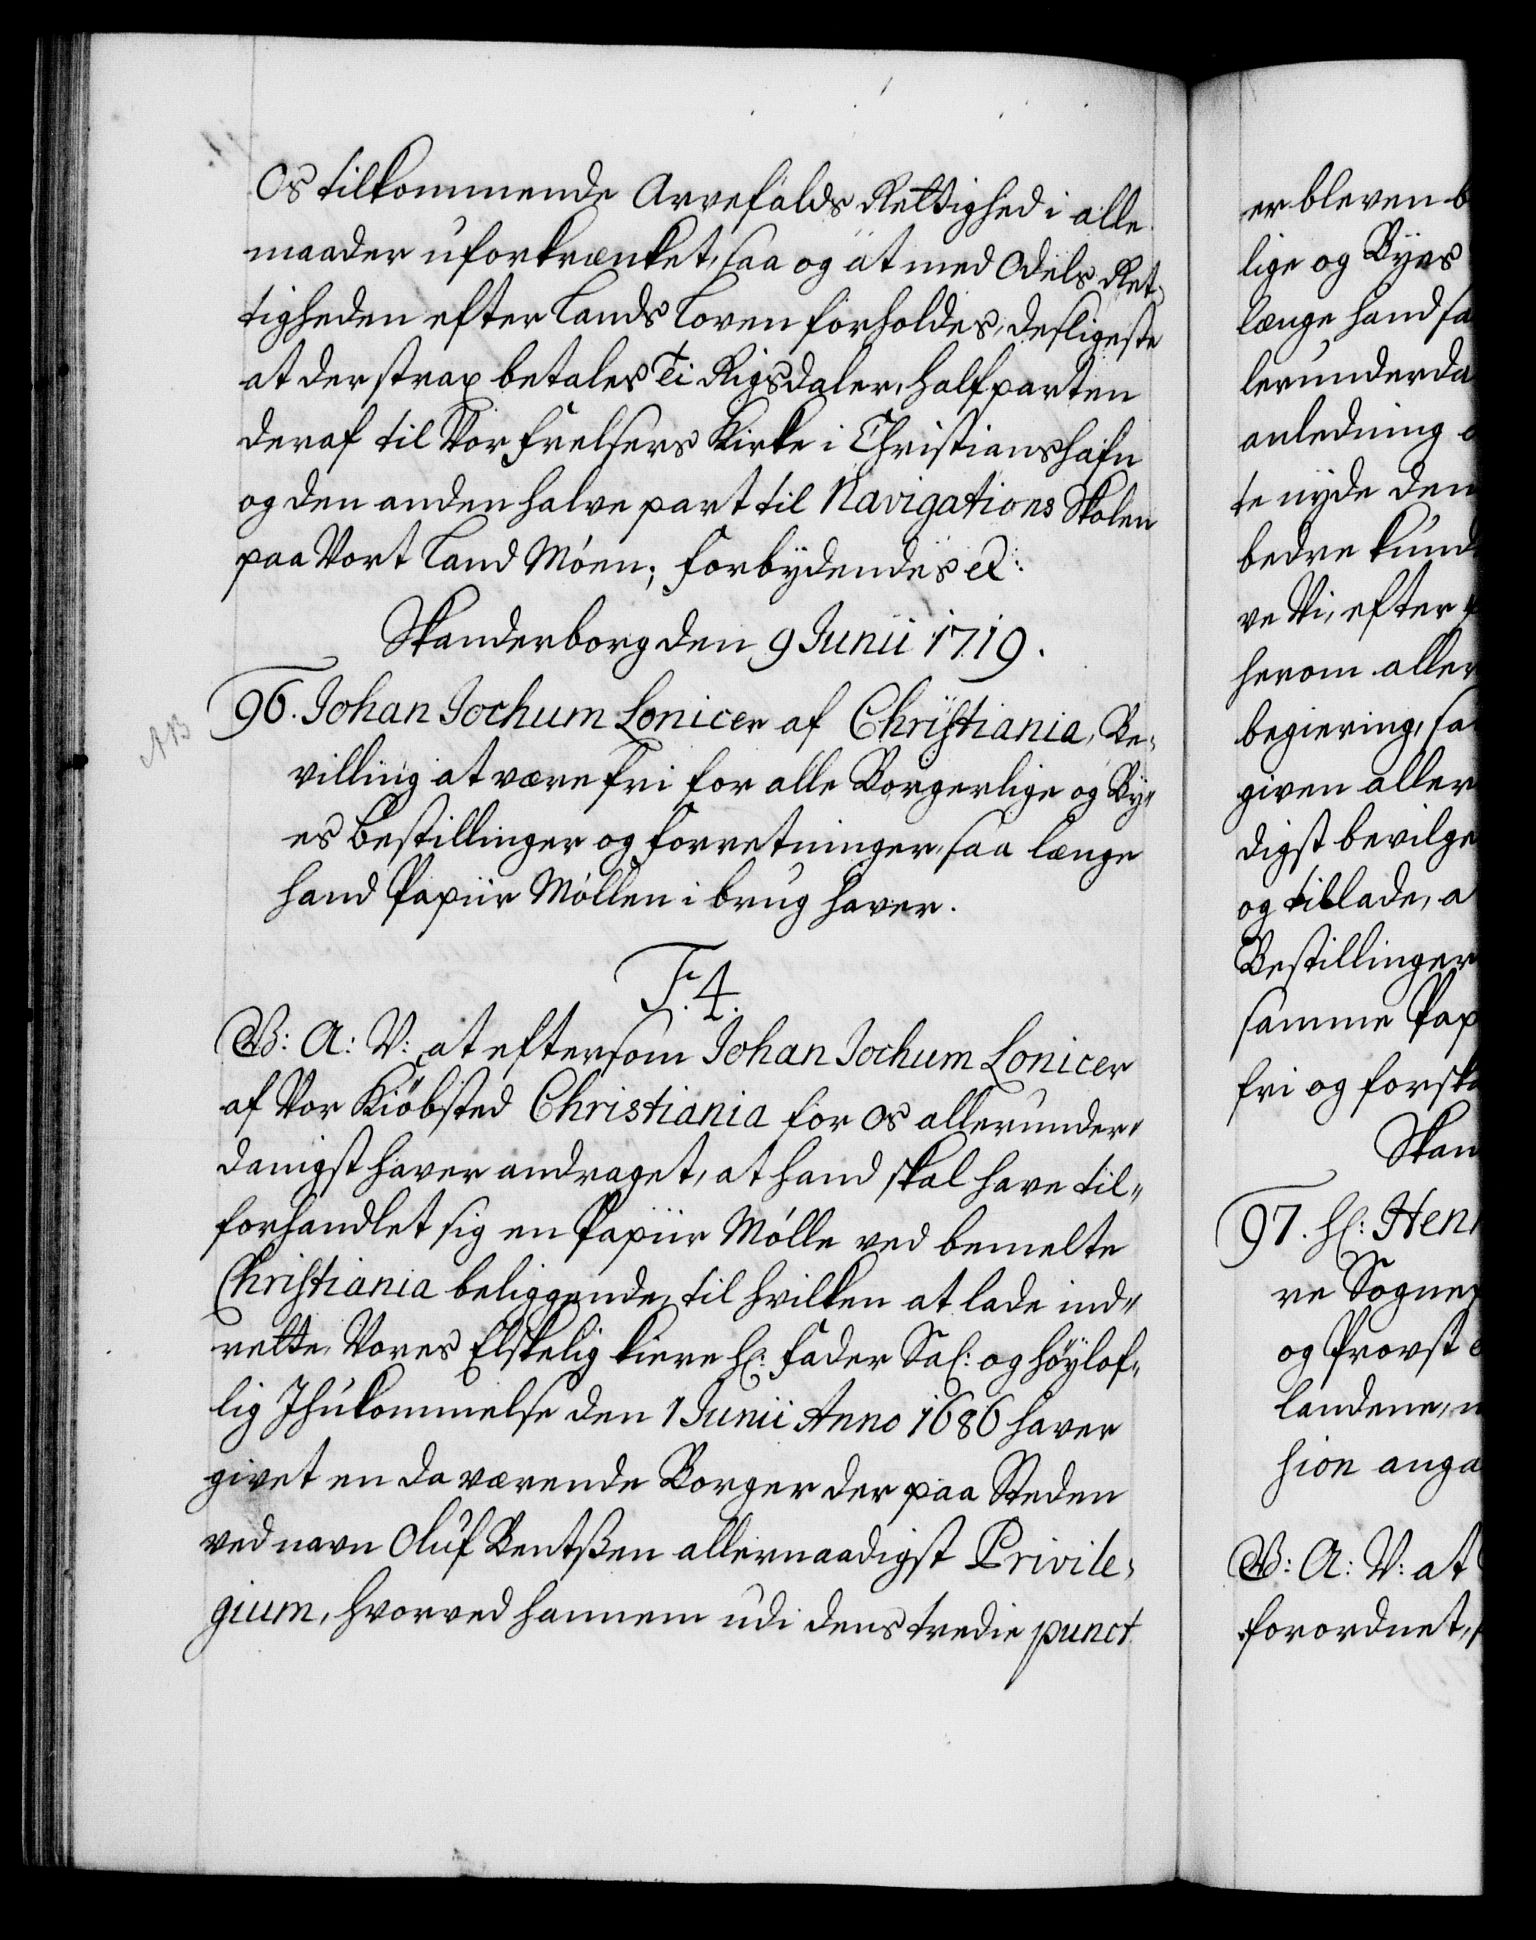 Os tilkommende Arvefalds Rettighed i alle
maader uforkrænket, saa og at med Odels Ret-
tigheden efter Lands Loven forholdes, desligeste
at der strax betales Ti Rigsdaler, halfparten
deraf til Vor Frelsers Kirke i Christianshafn
og den anden halve part til Navigations Skolen
paa Vort Land Móen; Forbydendes etc:
Skanderborg den 9 Junii 1719.
AB
96. Johan Jochum Lonicer af Christiania, Be-
villing at være fri for alle Borgerlige og By-
es bestillinger og forretninger, saa længe
hand Papiir Møllen i brug haver.
F. 4.
W: A: V: at eftersom Johan Jochum Lonicer
af Vor Kiöbsted Christiania for os allerunder-
danigst haver andraget, at hand skal have til-
forhandlet sig en Papiir Mølle ved bemelte
Christiania beliggende, til hvilken at lade ind-
rette, Vores Elskelig kiere H: Fader Sal: og høylof-
lig Ihukommelse den 1 Junii Anno 1686 haver
givet en da værende Borger der paa Steden
ved navn Oluf Bentßen allernaadigst Privile-
gium, hvorved hannem udi dens tredie punct
er bleven b
lige og Byes
længe hand sa
lerunderda
anledning
te nyde den
bedre kund
ve Vi, efter
herom aller
begiering, sa
given aller
digst bevilge
og tillade, a
Bestillinger
samme Pap
fri og forsk
Skan
97. H: Hen
re Sogne
og Provst
landene,
sion anga
W: A: V: at
forordnet,